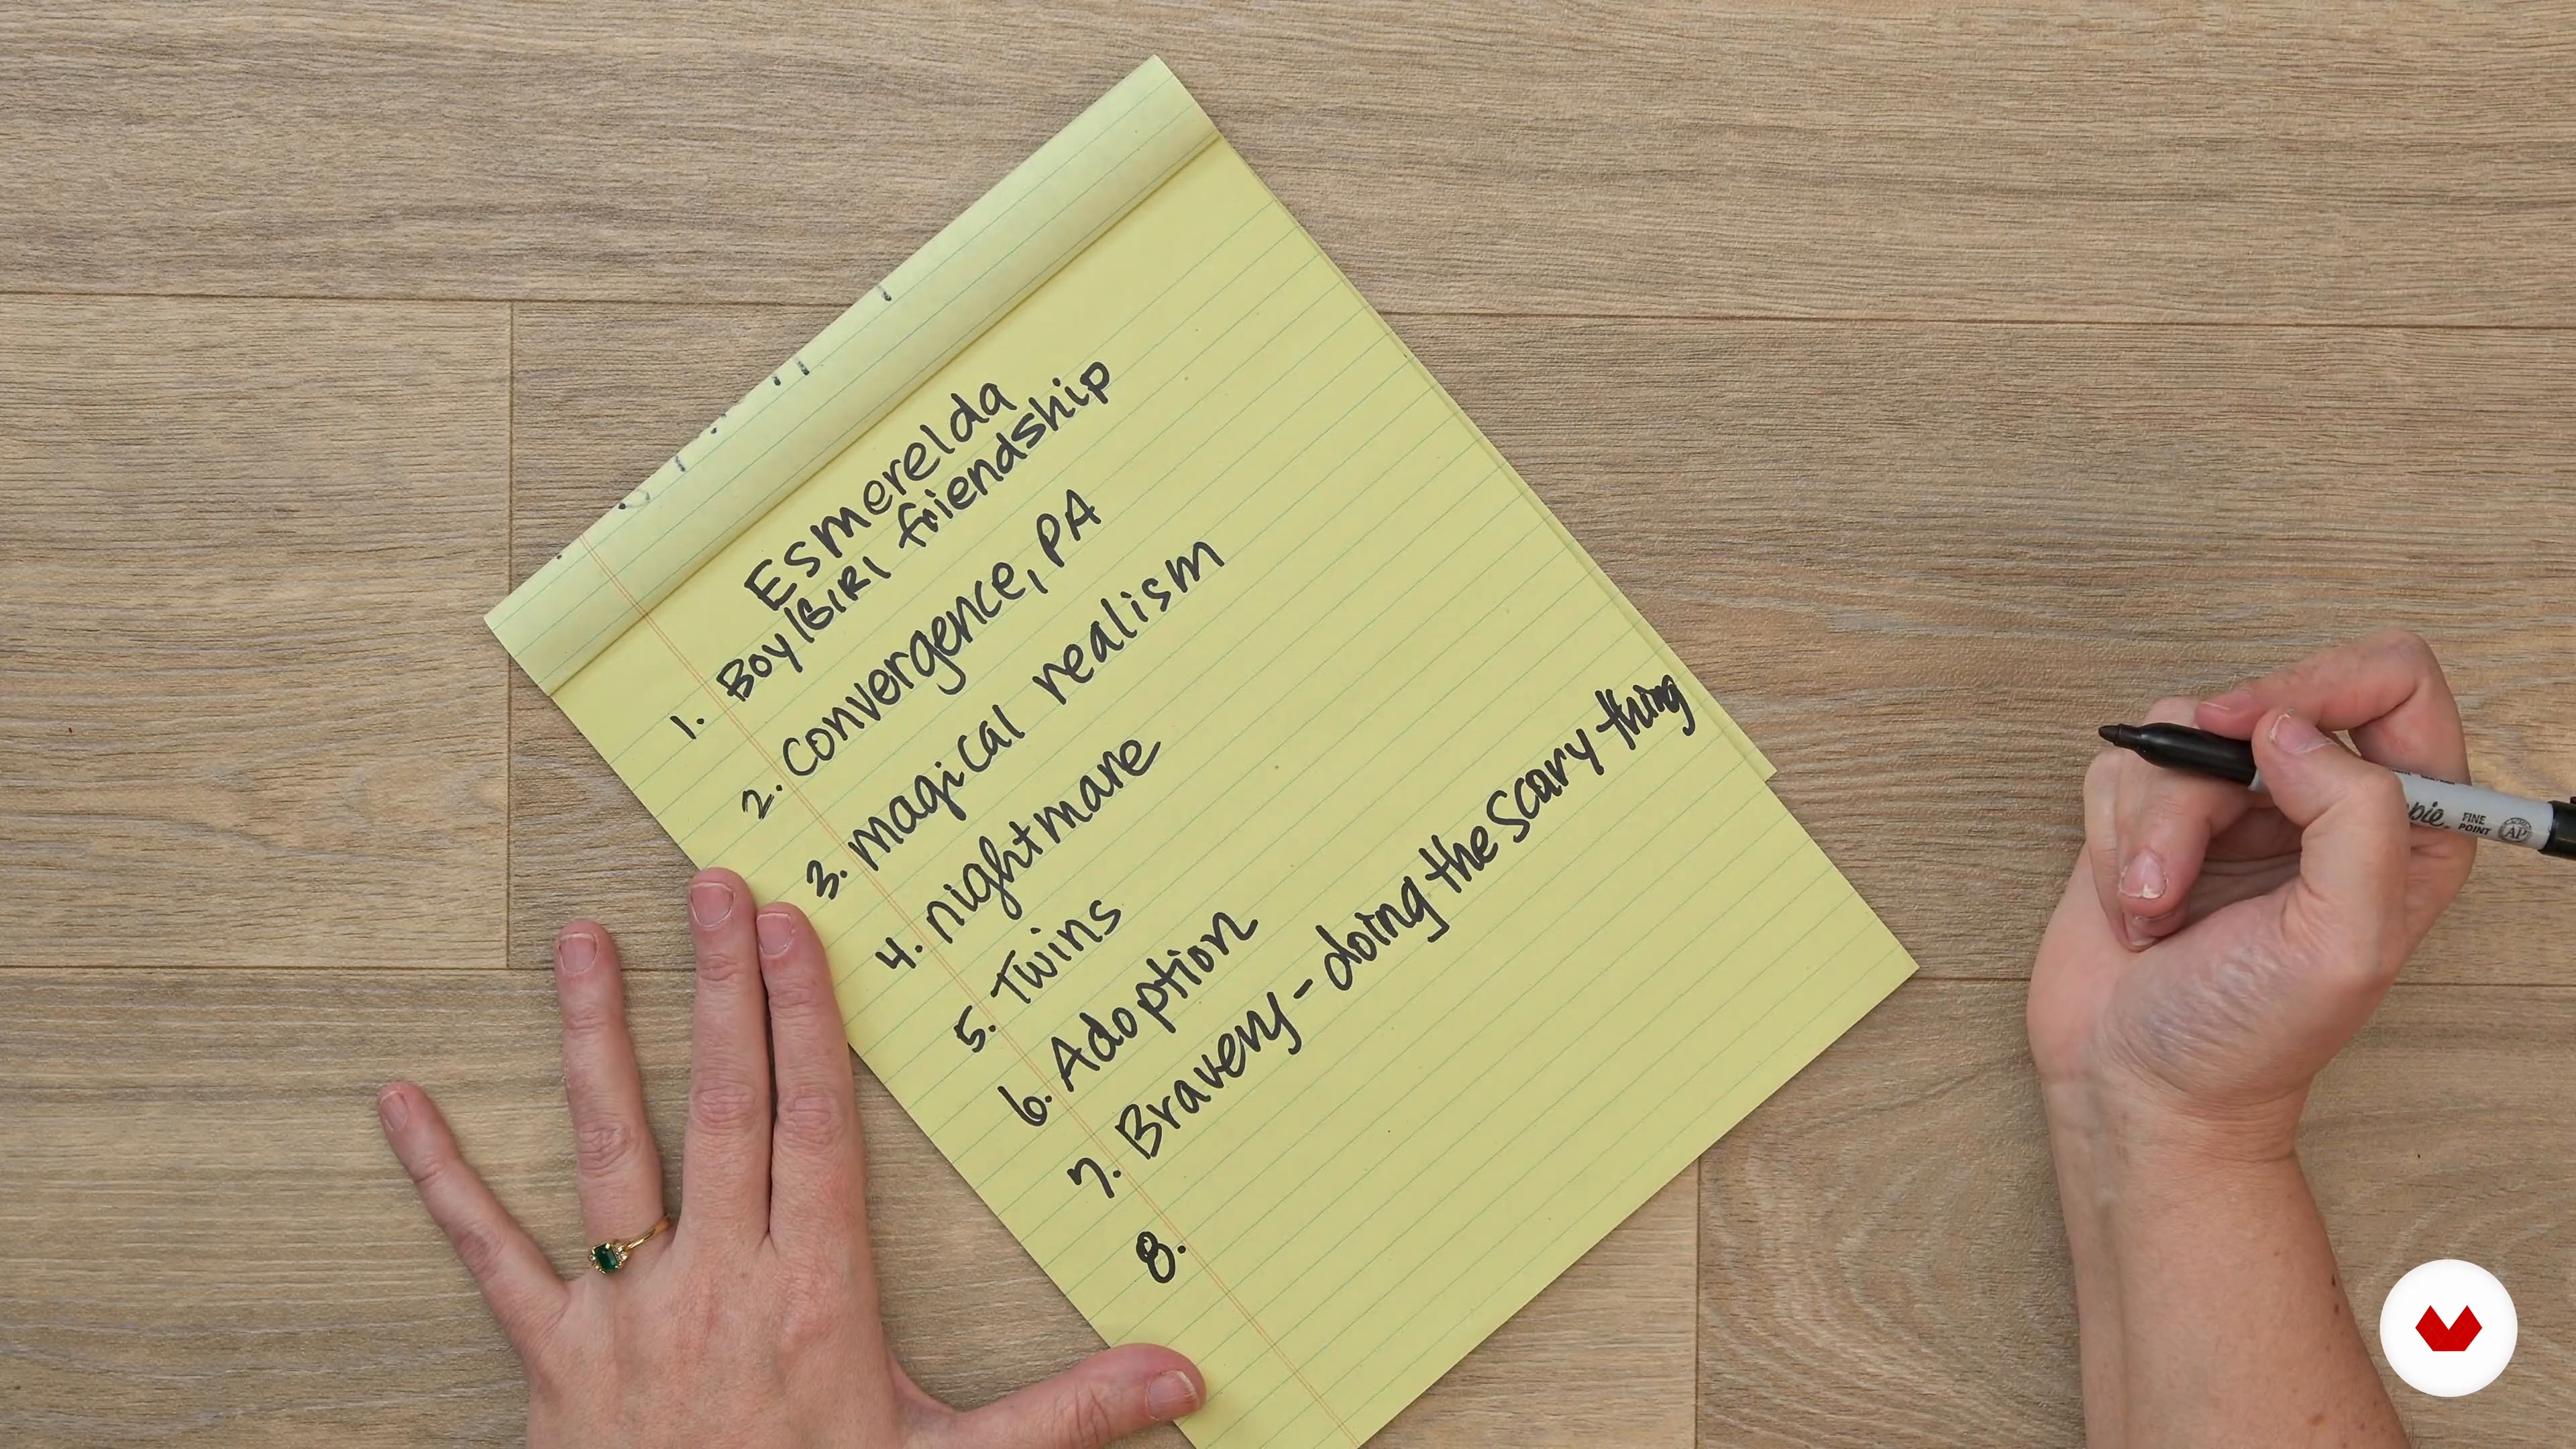 Esmerelda
1. Boy/GIRl friendship
2. Convergence, PA
3. magical realism
4. nightmare
5. Twins
6. Adoption
7. Bravery - doing the scary thing
8.
pie. FINE
POINT AP